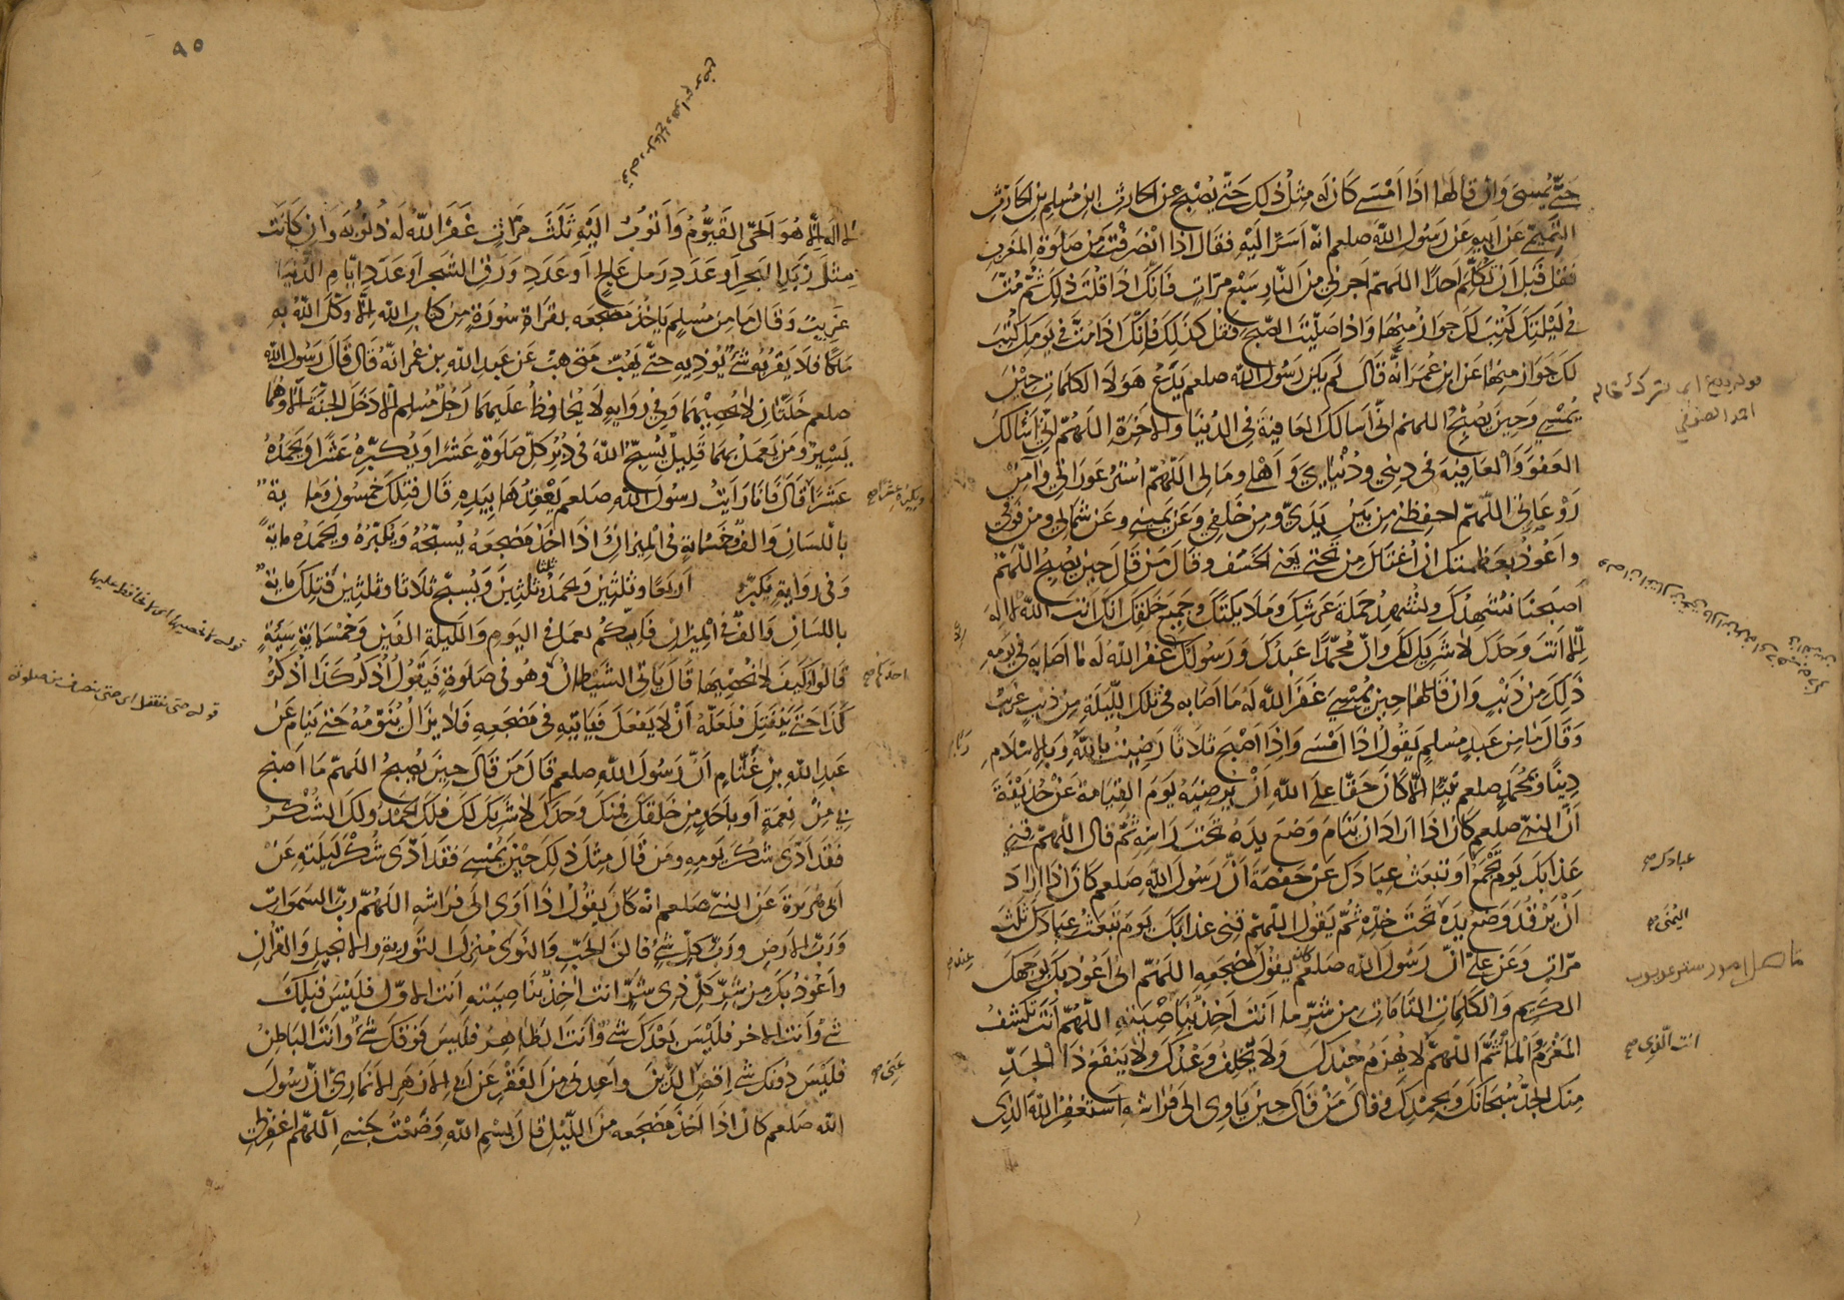 حتّى يمسى وان قالها اذا امسى كان له مثل ذلك حتّى يصبح عن الحارث ابن مسلم بن الحارث
التميمى عن ابيه عن رسول الله صلعم انه اسرّ اليه فقال اذا انصرفت من صلوة المغرب
فقل قبل ان تكلّم احدا اللهمّ اجرنى من النار سبع مرّات فانك اذا قلت ذلك ثم متّ
فى ليلتك كتب لك جواز منها واذا صلّيت الصّبح فقل كذلك فانك اذا متّ فى يومك كتب
لك جواز منها عن ابن عمر انّه قال لم يكن رسول الله صلعم يدع هؤلاء الكلمات حين
يمسى وحين يصبح اللهم انّى اسالك العافية فى الدنيا والاخرة اللهمّ انّى اسالك
العفو والعافية فى دينى ودنياى واهلى ومالى اللّهمّ استر عوراتى وآمن
روعاتى اللّهمّ احفظنى من بين يدىّ ومن خلفى وعن يمينى وعن شمالى ومن فوقى
واعوذ بعظمتك ان اغتال من تحتى يعنى الخسف وقال من قال حين يصبح اللّهمّ
اصبحنا نشهدك ونشهد حملة عرشك وملايكتك وجميع خلقك انك انت الله لا اله
الّا انت وحدك لا شريك لك وانّ محمّدا عبدك ورسولك غفر الله له ما اصابه فى يومه
ذلك من ذنب وان قالها حين يمسى غفر الله له ما اصابه فى تلك الليلة من ذنب غريب
وقال ما من عبد مسلم يقول اذا امسى واذا اصبح ثلاثا رضيت بالله وبالاسلام
دينا وبمحمد صلعم نبيّا الّا كان حقّا على الله ان يرضيه يوم القيامة عن حذيفة
انّ النبىّ صلعم كان اذا اراد ان ينام وضع يده تحت راسه ثمّ قال اللّهمّ قنى
عذابك يوم تجمع او تبعث عبادك عن حفصة انّ رسول الله صلعم كان اذا اراد
ان يرقد وضع يده تحت خدّه ثمّ يقول اللّهمّ قنى عذابك يوم تبعث عبادك ثلث
مرّات وعن علىّ انّ رسول الله صلعم كان يقول مضجعه اللهمّ انى اعوذ بك بوجهك
الكريم والكلمات التامات من شرّ ما انت اخذ بناصيته اللّهمّ انت تكشف
المغرم والماثم اللّهمّ لا يهزم جندك ولا يخلف وعدك ولا ينفع ذا الجدّ
منك الجدّ سبحانك وبحمدك وقال من قال حين ياوى الى فراشه استغفر الله الذى
عبادك صح
اليمنى صح
عند صح
انت الذى صح
٩٥
لا اله الّا هو الحىّ القيّوم واتوب اليه ثلث مرّات غفر الله له ذنوبه وان كانت
مثل زبد البحر او عدد رمل عالج او عدد ورق الشجر او عدد ايّام الدّنيا
غريب وقال ما من مسلم ياخذ مضجعه بقراة سورة من كتاب الله الّا وكّل الله به
ملكا فلا يقربه شىء يوذيه حتّى يهبّ متى هبّ عن عبد الله بن عمر انّه قال قال رسول الله
صلعم خلّتان لا يحصيهما وفى رواية لا يحافظ عليهما رجل مسلم الّا دخل الجنّة الا وهما
يسير ومن يعمل بهما قليل يسبّح الله فى دبر كلّ صلوة عشرا ويكبّره عشرا ويحمده
عشرا قال فانا رايت رسول الله صلعم يعقدها بيده قال فتلك خمسون وماية
باللسان والف وخمسماية فى الميزان اذا اخذ مضجعه يسبّحه ويكبّره ويحمده ماية
وفى رواية يكبّر اربعا وثلثين ويحمد ثلثا وثلثين ويسبّح ثلاثا وثلثين فتلك ماية
باللسان والف فى الميزان فايّكم يعمل فى اليوم والليلة الفين وخمسماية سيّئة
قالوا وكيف لا نحصيها قال ياتى الشيطان وهو فى صلوة فيقول اذكر كذا اذكر
كذا حتّى ينفتل فلعلّه ان لا يفعل فياتيه فى مضجعه فلا يزال ينوّمه حتى ينام عن
عبد الله بن غنّام انّ رسول الله صلعم قال من قال حين يصبح اللهمّ ما اصبح
بى من نعمة او باحد من خلقك فمنك وحدك لا شريك لك فلك الحمد ولك الشكر
فقد ادّى شكر يومه ومن قال مثل ذلك حين يمسى فقد ادّى شكر ليلته عن
ابى هريرة عن النبىّ صلعم انه كان يقول اذا اوى الى فراشه اللهمّ ربّ السموات
وربّ الارض وربّ كلّ شىء فالق الحبّ والنوى منزل التورية والانجيل والقران
واعوذ بك من شرّ كلّ ذى شرّ انت اخذ بناصيته انت الاوّل فليس قبلك
شىء وانت الاخر فليس بعدك شىء وانت الظاهر فليس فوقك شىء وانت الباطن
فليس دونك شىء اقض الدّين واعدنى من الفقر عن ابى الازهر الانمارىّ انّ رسول
الله صلعم كان اذا اخذ مضجعه من الليل قال بسم الله وضعت جنبى اللّهمّ اغفر لى
ويكبره عشرا صح
احدكم صح
عنّى صح
قوله لا يحصيهما اى لا يحافظ عليها
قوله حتى ينفتل اى حتى ينصرف من صلوته